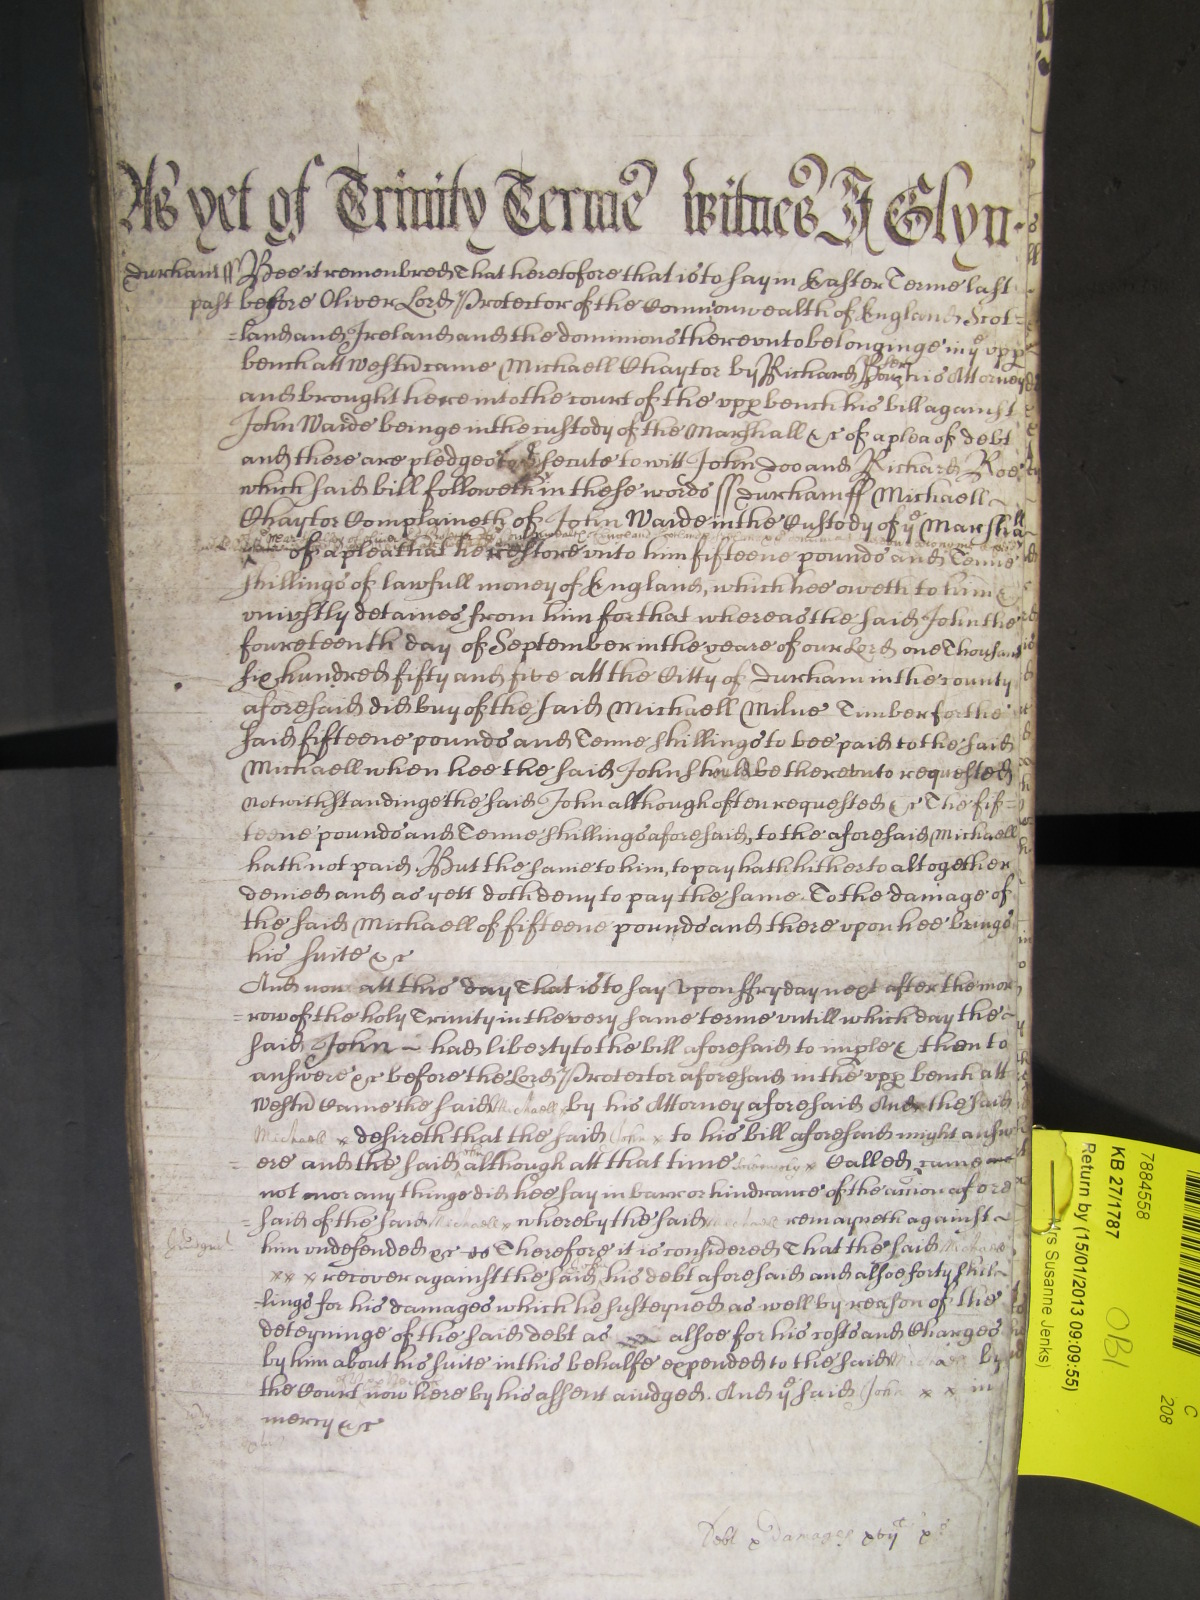 As yet of Trinity Terme witnes J Glyn
Durham ss Bee it remembred That heretofore that is to say in Easter Terme last
past before Oliver Lord Protector of the Commonwealth of England Scot=
=land and Ireland and the dominions thereunto belonginge in ye upp
bench att Westm came Michaell Chaytor by Richard his Attorney
and brought heere into the court of the upp bench his bill against
John Warde beinge in the custody of the Marshall &c of a plea of debt
and there are pledges to psecute to witt John Doo and Richard Roe
which said bill followeth in these words ss Durham ss Michaell
Chaytor Complaineth of John Warde in the Custody of ye Marshall
of a plea that he restore unto him fifteene pounds and Tenne
shillings of lawfull money of England, which hee oweth to him &
uniustly detaines from him for that whereas the said John the
foureteenth day of September in the yeare of our Lord one Thousand
six hundred fifty and five att the Citty of Durham in the county
aforesaid did buy of the said Michaell Milne Timber for the
said fifteene pounds and Tenne shillings to bee paid to the said
Michaell when hee the said John should be thereunto requested
Notwithstandinge the said John although often requested &c The fif=
teene pounds and Tenne shillings aforesaid, to the aforesaid Michaell
hath not paid. But the same to him, to pay hath hitherto altogether
denied and as yett doth deny to pay the same. To the damage of
the said Michaell of fifteene pounds and there upon hee brings
his suite &c
And now att this day That is to say upon ffryday next after the mor
=row of the holy Trinity in the very same terme untill which day the
said John had liberty to the bill aforesaid to imple & then to
answere &c before the Lord Protector aforesaid in the upp bench att
Westm Came the said Michaell by his Attorney aforesaid And the said
Michaell x desireth that the said John x to his bill aforesaid might answ
=ere and the said John although att that time solemnly x Called, came
not nor any thinge did hee say in barr or hindrance of the accion afore
=said of the said Michaell x whereby the said Michaell remayneth against
him undefended &c Therefore it is considered That the said Michaell
x x x recover against the said John his debt aforesaid and alsoe forty shil
=lings for his damages which he susteyned as well by reason of the
deteyninge of the said debt as alsoe for his costs and Charges
by him about his suite in this behalfe expended to the said Michaell by
the Court now here by his assent aiudged. And ye said John x x in
mercy &c
Debt & damages xvij x
7884558
KB 27/1787
Return by (15/01/2013 09:09:55)
Mrs Susanne Jenks)
OBI
C
208